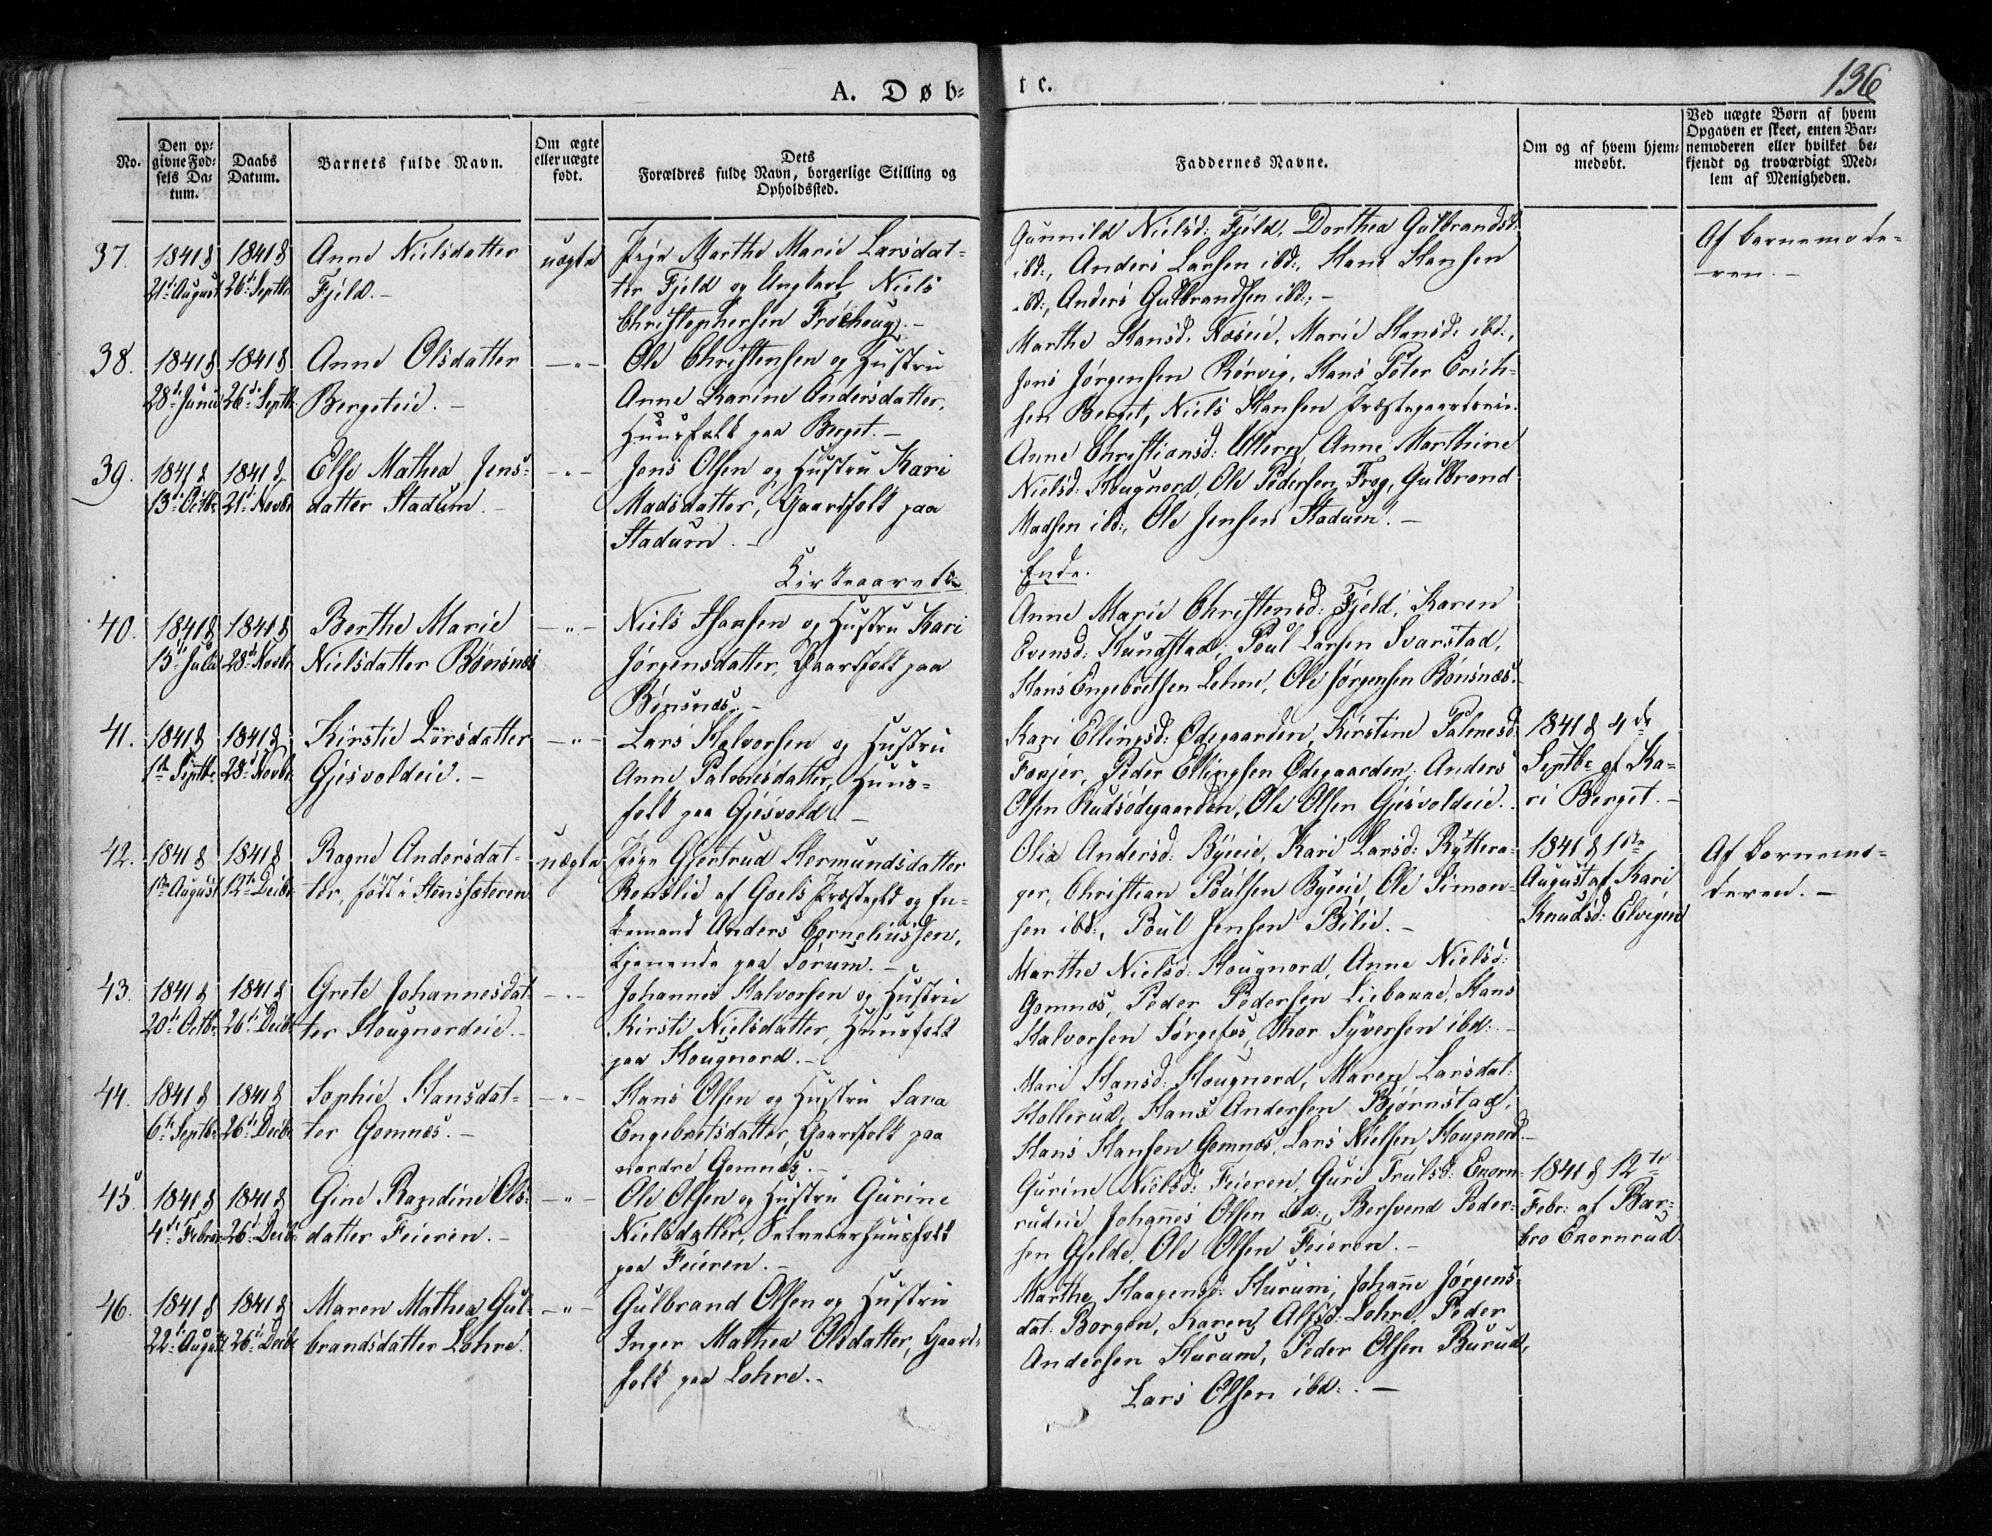 A. Døb-
te.
136
No.
Den op-
givne Fød-
sels Da-
tum.
Daabs
Datum.
Barnets fulde Navn.
Om ægte
eller uægte
født.
Dets
Forældres fulde Navn, borgerlige Stilling og
Opholdssted.
Faddernes Navne.
Om og af hvem hjem-
medøbt.
Ved uægte Børn af hvem
Opgaven er skeet, enten Bar-
nemoderen eller hvilket be-
kjendt og troværdigt Med-
lem af Menigheden.
37.
1841 d
21de August
1841 d
26de Septbr
Anne Nielsdatter
Fjeld.-
uægte
Pige Marthe Marie Larsdat-
ter Fjeld og Ungkarl Niels
Christophersen Frøshoug.-
Gunnild Nielsd: Fjeld, Dorthea Gulbrandsd:
ibd:, Anders Larsen ibd:, Hans Hansen
ibd:, Anders Gulbrandsen ibd:,-
Af barnemode-
ren.-
38.
1841 d
28de Junii
1841 d
26de Septbr
Anne Olsdatter
Bergeteie.-
-"-
Ole Christensen og Hustru
Anne Karine Andersdatter,
Huusfolk paa Berget.-
Marthe Hansd: Næseie, Marie Hansd: ibd:,
Jens Jørgensen Rørvig, Hans Peter Erich-
sen Berget, Niels Hansen Præstegaardseie.
39.
1841 d
13de Octbr
1841 d
21de Novbr
Else Mathea Jens-
datter Stadum.-
-"-
Jens Olsen og Hustru Kari
Madsdatter, Gaardfolk paa
Stadum.-
Anne Christiansd: Ullern, Anne Marthine
Nielsd: Hougnord, Ole Pedersen Frog, Gulbrand
Madsen ibd:, Ole Jensen Stadum.-
Kirkeaarets
Ende.
40.
1841 d
13de Julii
1841 d
28de Novbr
Berthe Marie
Nielsdatter Bønsnæs
-"-
Niels Hansen og Hustru Kari
Jørgensdatter, Gaardfolk paa
Bønsnæs.-
Anne Marie Christensd: Fjeld, Karen
Evensd: Hundstad, Poul Larsen Svarstad,
Hans Engebretsen Lehne, Ole Jørgensen Bønsnæs.
41.
1841 d
1ste Septbr
1841 d
28de Novbr
Kirstie Larsdatter
Gjesvoldeie.-
-"-
Lars Halvorsen og Hustru
Anne Palmesdatter, Huus-
folk paa Gjesvold.-
Kari Ellingsd: Ødegaarden, Kirstine Palmesd:
Foxjer, Peder Ellingsen Ødegaarden, Anders
Olsen Rudsødegaarden, Ole Olsen Gjesvoldeie.
1841 d 4de
Septbr af Ka-
ri Berget.-
42.
1841 d
1ste August
1841 d
12te Decbr
Ragne Andersdat-
ter, født i Steensfeteren
uægte
Pige Gjertrud Hermundsdatter
Renslie af Goels Præstegld og En-
kemand Anders Corneliussen,
tjenende paa Sørum.-
Olia Andersd: Byeeie, Kari Larsd: Ryttera-
ger, Christian Poulsen Byeeie, Ole Simon-
sen ibd:, Poul Jensen Bilie.-
1841 d 1ste
August af Kari
Knudsd: Elvigen
Af barnemo-
deren.-
43.
1841 d
20de Octbr
1841 d
26de Decbr
Grete Johannesdat-
ter Hougnordeie.-
-"-
Johannes Halvorsen og Hustru
Kirsti Nielsdatter, Huusfolk
paa Hougnord.-
Marthe Nielsd: Hougnord, Anne Nielsd:
Gomnæs, Peder Pedersen Liebanne, Hans
Halvorsen Sørgefos, Thor Syversen ibd:-
44.
1841 d
6te Septbr
1841 d
26de Decbr
Sophie Hansdat-
ter Gomnes.-
-"-
Hans Olsen og Hustru Sara
Engebretsdatter, Gaardfolk paa
nordre Gomnæs.-
Mari Hansd: Hougnord, Maren Larsdat:
Hollerud, Hans Andersen Bjørnstad,
Hans Hansen Gomnæs, Lars Nielsen Hougnord.-
45
1841 d
4de Februar
1841 d
26de Decbr
Gine Randine Ols-
datter Feieren.-
-"-
Ole Olsen og Hustru Gurine
Nielsdatter, Selveierhuusfolk
paa Feieren.-
Gurine Nielsd: Feieren, Guri Trulsd: Exorn-
rudeie, Johannes Olsen ibd:, Bersvend Peder-
sen Gjelde, Ole Olsen Feieren.-
1841 d 12te
Febr: af Bar-
bro Exornrud.
46.
1841 d
22de August
1841 d
26de Decbr
Maren Mathea Gul-
brandsdatter Lohre.
-"-
Gulbrand Olsen og Hustru
Inger Mathea Olsdatter, Gaard-
folk paa Lohre.-
Marthe Haagensd: Hurum, Johanne Jørgens-
dat: Borgen, Karen Alfsd: Lohre, Peder
Andersen Hurum, Peder Olsen Burud,
Lars Olsen ibd:.-